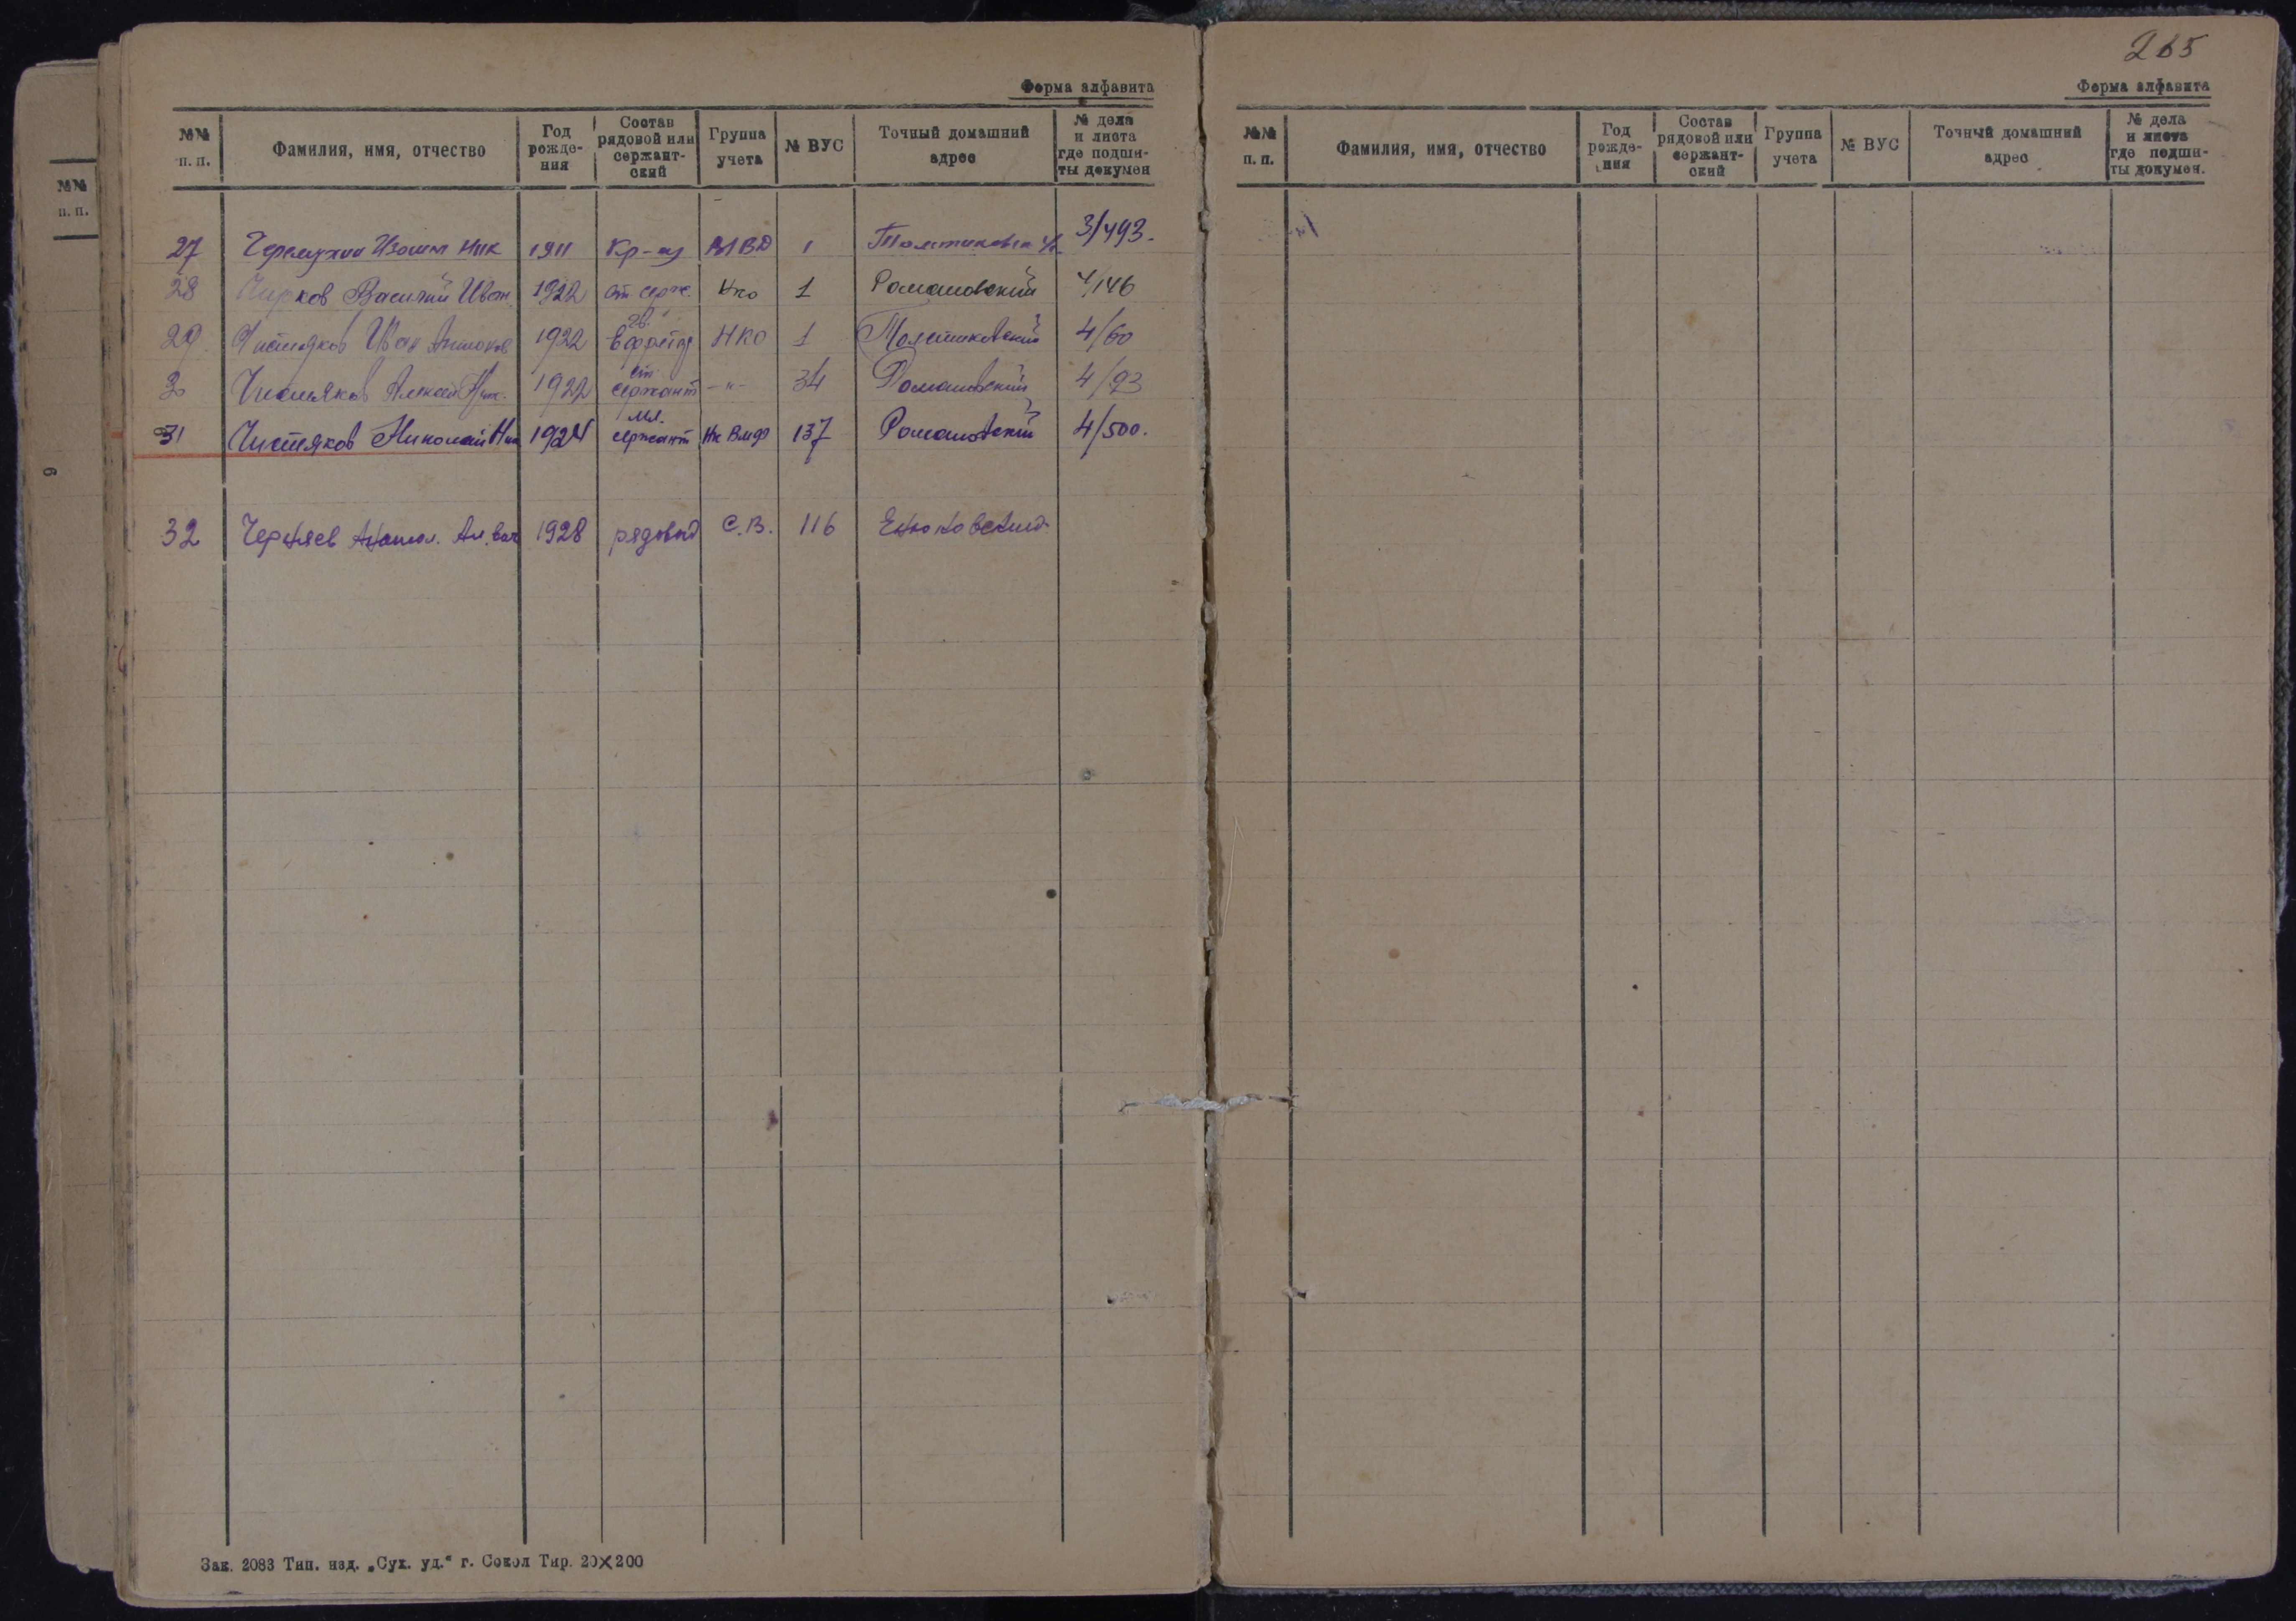 Форма алфавита
№№ п. п. Фамилия, имя, отчество Год рожде- ния Состав рядовой или сержант- ский Группа учета № ВУС Точный домашний адрес № дела и листа где подши- ты докумен
27 Черемухин Изосим Ник 1911 Кр-ец МВД 1 3/493.
28 Чирков Василий Иван 1922 ст. серж. Нко 1 Романовский 4/146
29 Чистяков Иван Антонов 1922 гв. ефрейтр НКО 1 4/60
30 Чистяков Алексей Ник. 1922 ст сержант -"- 34 Романовский 4/93
31 Чистяков Николай Ник 1924 мл. сержант Нк Вмф 137 Романовский 4/500.
32 Черняев Анатол. Ал. 1928 рядовой С.В. 116 Енюковский
Зак. 2083 Тип. изд. „Сух. уд.“ г. Сокол Тир. 20×200
№№
п. п.
6
265
Форма алфавита
№№ п. п. Фамилия, имя, отчество Год рожде- ния Состав рядовой или сержант- ский Группа учета № ВУС Точный домашний адрес № дела и листа где подши- ты докумен.